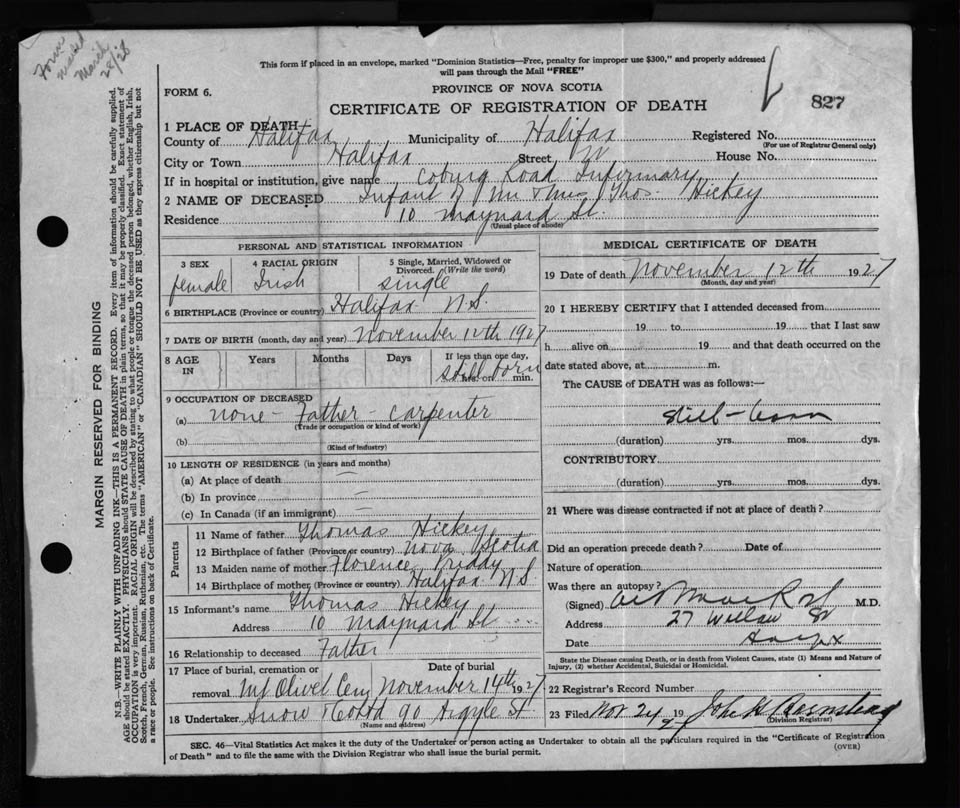 Form
March
28/28
This form if placed in an envelope, marked "Dominion Statistics—Free, penalty for improper use $300," and properly addressed
will pass through the Mail "FREE"
FORM 6.
PROVINCE OF NOVA SCOTIA
827
CERTIFICATE OF REGISTRATION OF DEATH
1 PLACE OF DEATH
County of Halifax Municipality of Halifax Registered No.
(For use of Registrar General only)
City or Town Halifax Street House No.
If in hospital or institution, give name Coburg Road Infirmary
2 NAME OF DECEASED Infant of Mr & Mrs Thos Hickey
Residence 10 Maynard St.
(Usual place of abode)
PERSONAL AND STATISTICAL INFORMATION
3 SEX 4 RACIAL ORIGIN 5 Single, Married, Widowed or
Divorced. (Write the word)
female Irish single
6 BIRTHPLACE (Province or country) Halifax N.S.
7 DATE OF BIRTH (month, day and year) November 12th 1927
8 AGE IN Years Months Days If less than one day,
still born hrs. or min.
9 OCCUPATION OF DECEASED
(a) none - Father - carpenter
(Trade or occupation or kind of work)
(b)
(Kind of industry)
10 LENGTH OF RESIDENCE (in years and months)
(a) At place of death —
(b) In province —
(c) In Canada (if an immigrant) —
Parents
11 Name of father Thomas Hickey
12 Birthplace of father (Province or country) Nova Scotia
13 Maiden name of mother Florence Priddy
14 Birthplace of mother (Province or country) Halifax N.S.
15 Informant's name Thomas Hickey
Address 10 Maynard St
16 Relationship to deceased Father
17 Place of burial, cremation or Date of burial
removal Mt Olivet Cem November 14th 1927
18 Undertaker Snow & Co Ltd 90 Argyle St
(Name and address)
MEDICAL CERTIFICATE OF DEATH
19 Date of death November 12th 1927
(Month, day and year)
20 I HEREBY CERTIFY that I attended deceased from
19 to 19 that I last saw
h alive on 19 and that death occurred on the
date stated above, at m.
The CAUSE of DEATH was as follows:—
still-born
(duration) yrs. mos. dys.
CONTRIBUTORY
(duration) yrs. mos. dys.
21 Where was disease contracted if not at place of death?
Did an operation precede death? Date of
Nature of operation
Was there an autopsy?
(Signed) M.D.
Address 27 Willow St
Date
State the Disease causing Death, or in death from Violent Causes, state (1) Means and Nature of
Injury, (2) whether Accidental, Suicidal or Homicidal.
22 Registrar's Record Number
23 Filed Nov 24 1927 John H Barnstead
(Division Registrar)
SEC. 46—Vital Statistics Act makes it the duty of the Undertaker or person acting as Undertaker to obtain all the particulars required in the "Certificate of Registration
of Death" and to file the same with the Division Registrar who shall issue the burial permit.
(OVER)
MARGIN RESERVED FOR BINDING
N.B.—WRITE PLAINLY WITH UNFADING INK—THIS IS A PERMANENT RECORD. Every item of information should be carefully supplied.
AGE should be stated EXACTLY. PHYSICIANS should STATE CAUSE OF DEATH in plain terms, so that it may be properly classified. Exact statement of
OCCUPATION is very important. RACIAL ORIGIN will be described by stating to what people or tongue the deceased person belonged, whether English, Irish,
Scotch, French, German, Russian, Ruthenian, etc. The terms "AMERICAN" or "CANADIAN" SHOULD NOT BE USED as they express citizenship but not
a race or people. See instructions on back of Certificate.